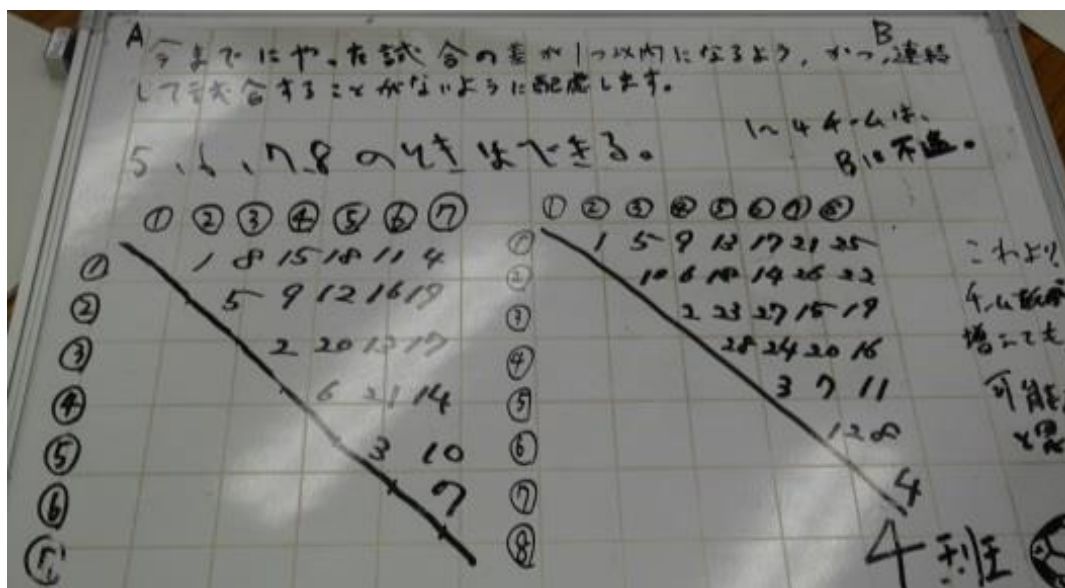 A B
今までにやった試合の差が1つ以内になるよう、かつ、連続
して試合することがないように配慮します。
1〜4チームは、
Bは不適。
5、6、7、8のときはできる。
① ② ③ ④ ⑤ ⑥ ⑦
① 1 8 15 18 11 4
② 5 9 12 16 19
③ 2 20 13 17
④ 6 21 14
⑤ 3 10
⑥ 7
① ② ③ ④ ⑤ ⑥ ⑦ ⑧
① 1 5 9 13 17 21 25
② 10 6 18 14 26 22
③ 2 23 27 15 19
④ 28 24 20 16
⑤ 3 7 11
⑥ 12 8
⑦ 4
⑧
これより
増えても
可能
4班